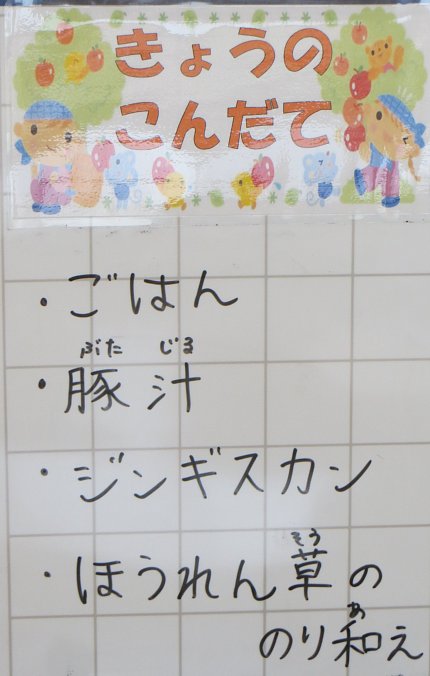 きょうの
こんだて
・ごはん
ぶた じる
・豚汁
・ジンギスカン
そう
・ほうれん草の
あ
のり和え